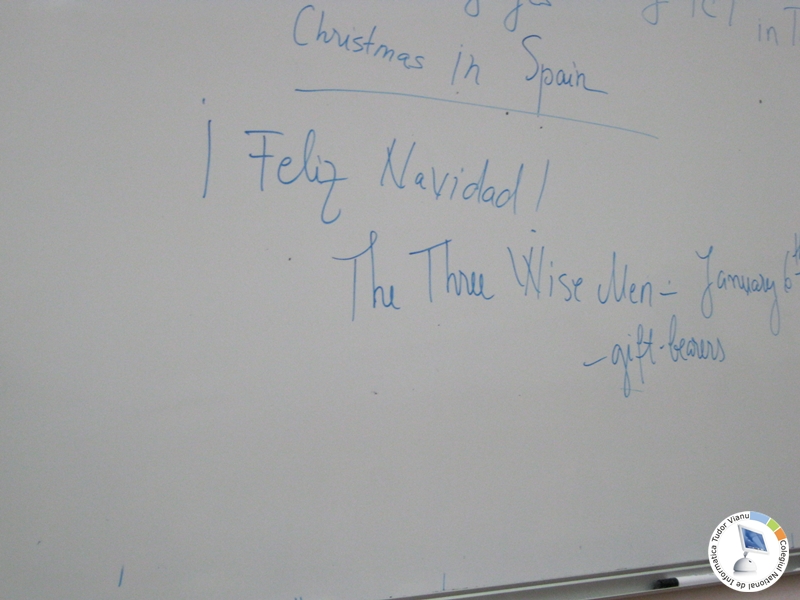 in
Christmas in Spain
¡Feliz Navidad!
The Three Wise Men - January 6th
- gift-bearers
Colegiul National de Informatica Tudor Vianu